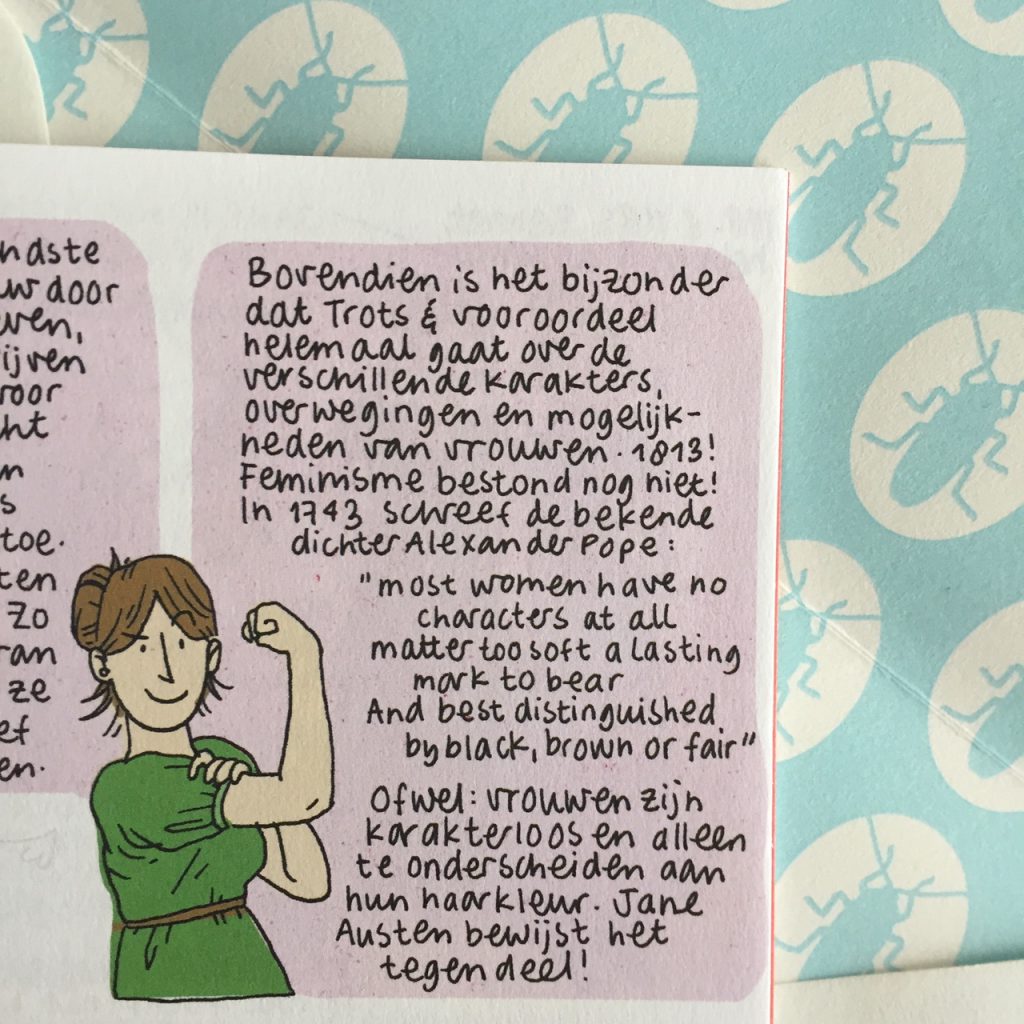 ndste
uw door
even,
ijven
voor
cht
n
s
toe.
ten
zo
ran
ze
ef
en.
Bovendien is het bijzonder
dat Trots & vooroordeel
helemaal gaat over de
verschillende karakters,
overwegingen en mogelijk-
heden van vrouwen. 1813!
Feminisme bestond nog niet!
In 1743 schreef de bekende
dichter Alexander Pope:
"most women have no
characters at all
matter too soft a lasting
mark to bear
And best distinguished
by black, brown or fair"
Ofwel: vrouwen zijn
karakterloos en alleen
te onderscheiden aan
hun haarkleur. Jane
Austen bewijst het
tegendeel!